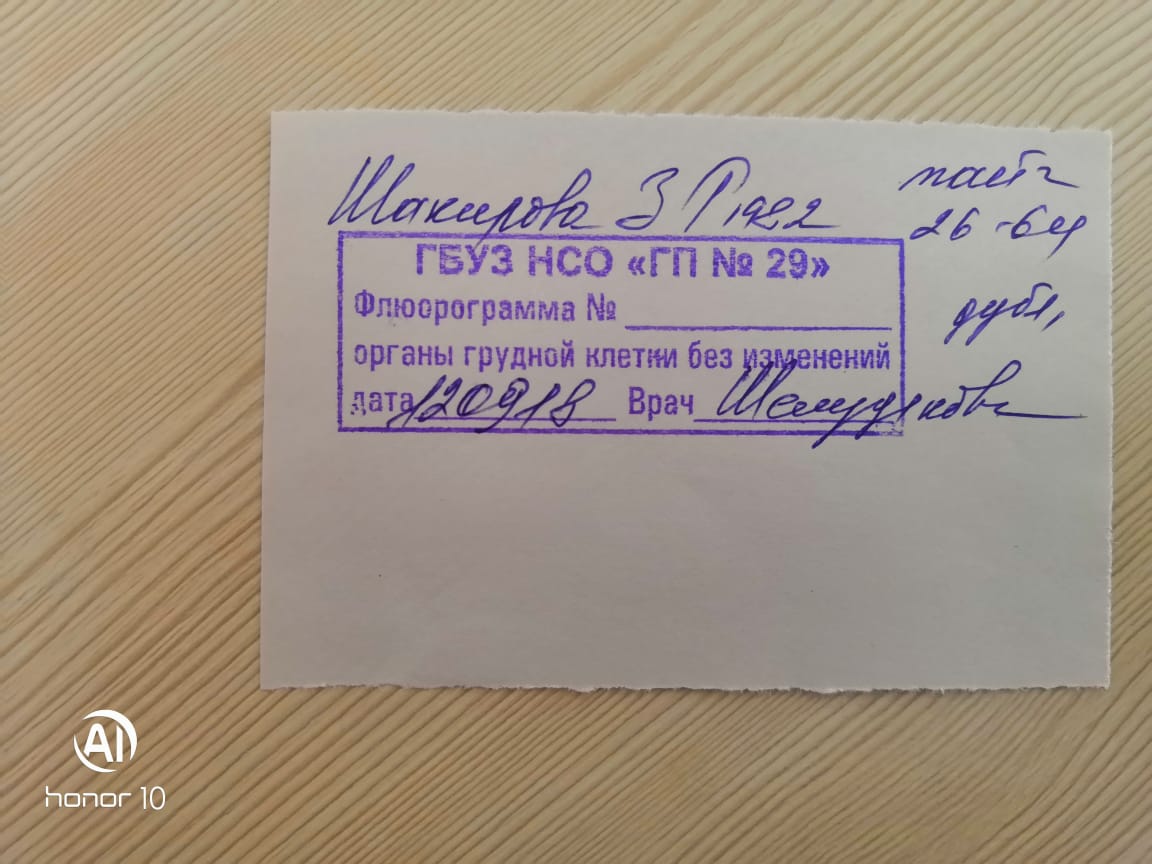 Шакирова З Г 1982
26-64
дубл,
ГБУЗ НСО «ГП № 29»
Флюорограмма №
органы грудной клетки без изменений
дата 120918 Врач
AI
honor 10